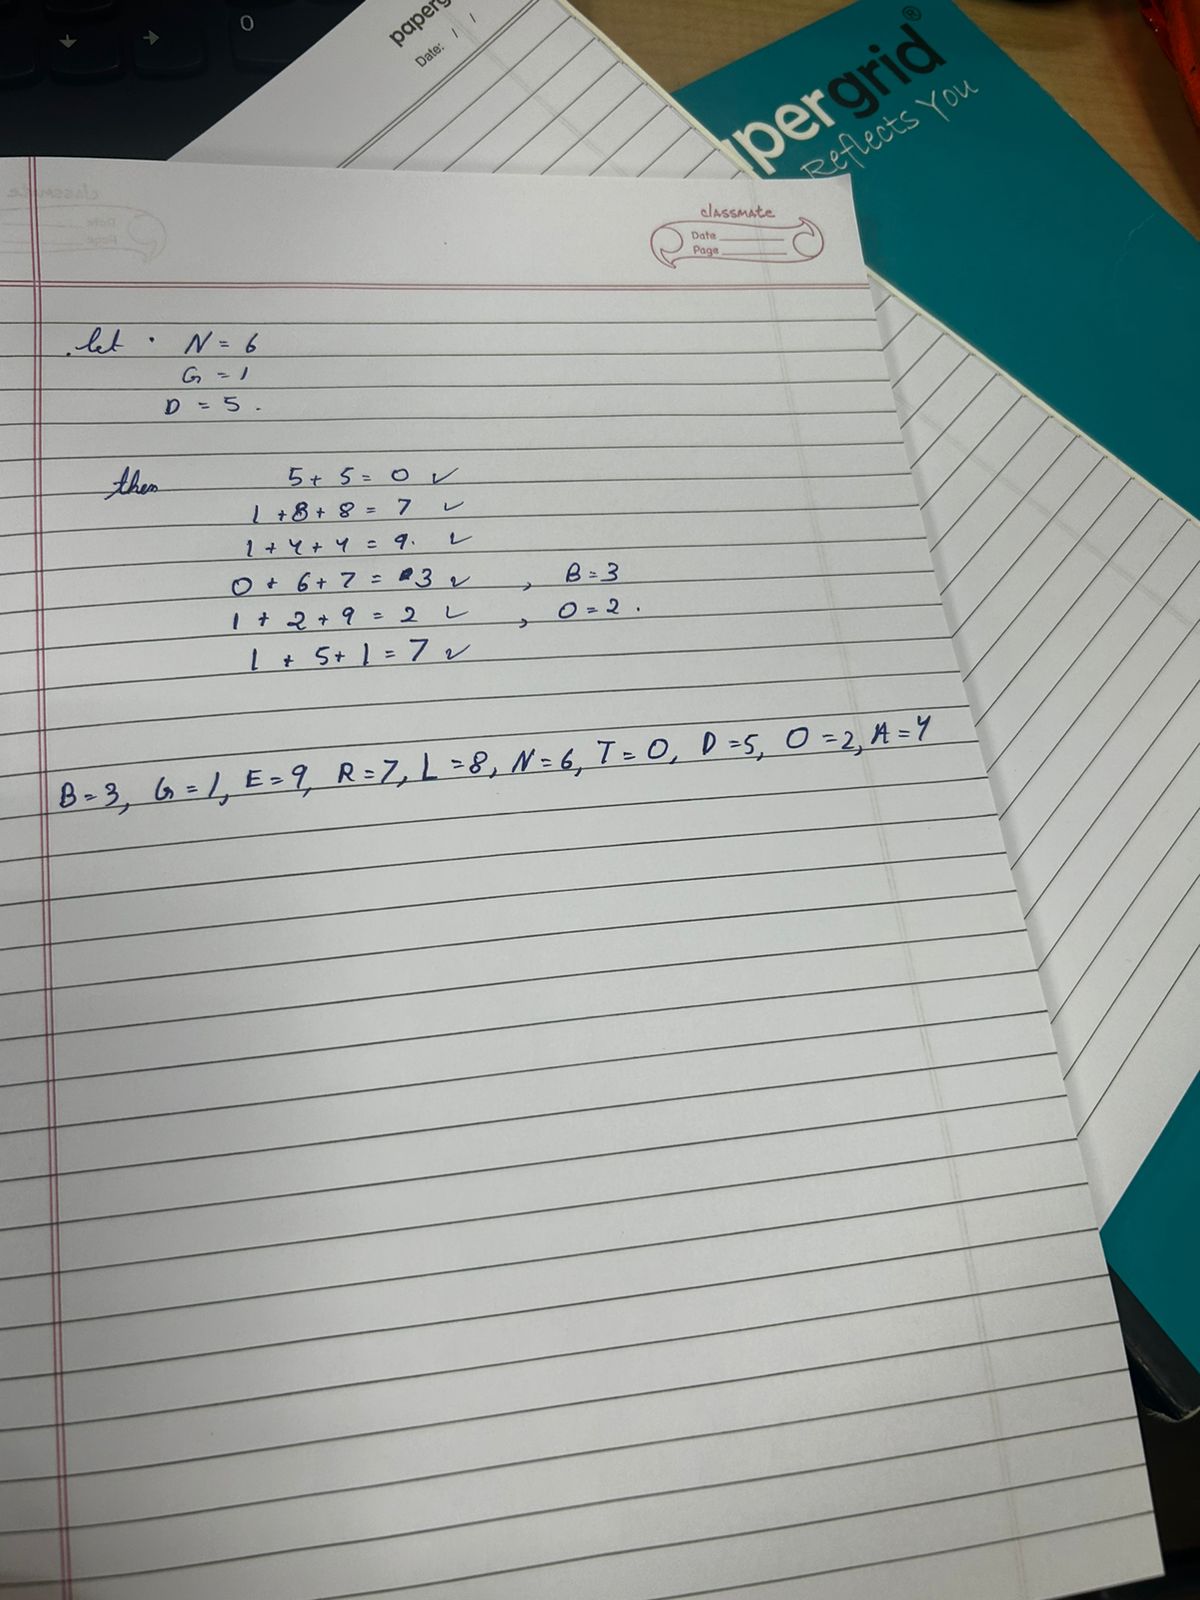 0
papergrid
Date: / /
papergrid®
Reflects You
classmate
Date
Page
let · N = 6
G = 1
D = 5.
then 5 + 5 = 0 ✓
1 + 8 + 8 = 7 ✓
1 + 4 + 4 = 9. ✓
0 + 6 + 7 = 3 ✓ , B = 3
1 + 2 + 9 = 2 ✓ , O = 2.
1 + 5 + 1 = 7 ✓
B = 3, G = 1, E = 9, R = 7, L = 8, N = 6, T = 0, D = 5, O = 2, A = 4